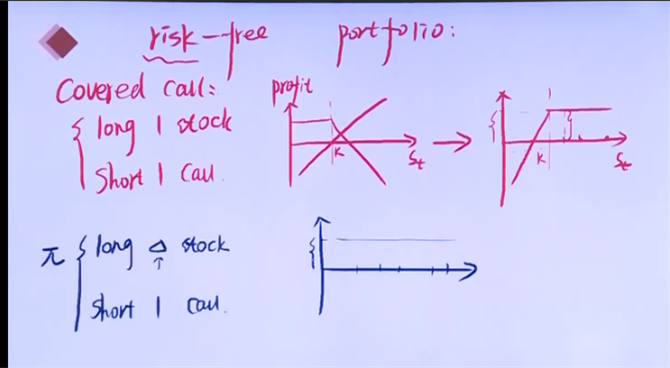 risk-free portfolio:
Covered call:
long 1 stock
Short 1 Call.
profit
K
St
K
St
π
long Δ stock
↑
Short 1 Call.